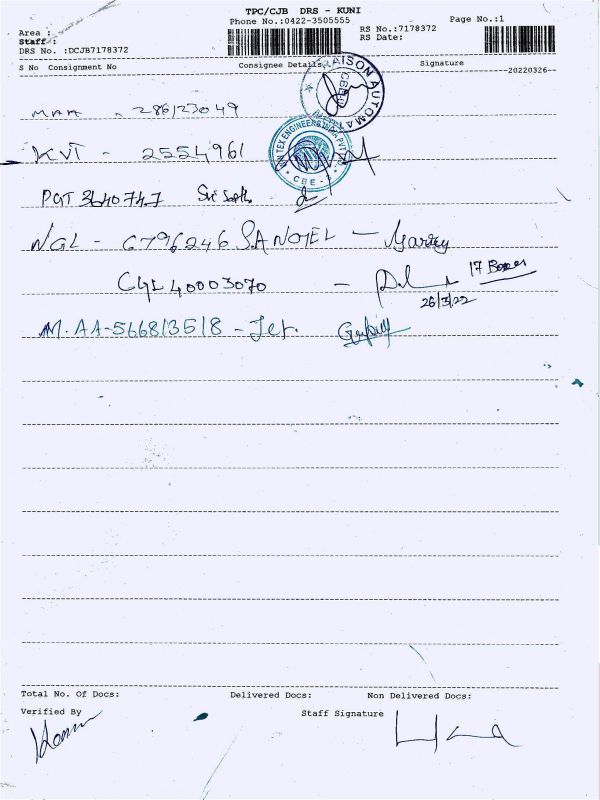 TPC/CJB DRS - KUNI
Phone No.:0422-3505555
Page No.:1
Area :
Staff :
DRS No. :DCJB7178372
RS No.:7178372
RS Date:
S No Consignment No
Consignee Details
Signature
20220326
MAA - 286123049
KVT - 2554961
PGT 3640747
NGL - 6796246 SANOTEL -
CGL 40003070 -
17 Boxes
26/3/22
M.AA-566813518 - Jet.
Total No. Of Docs:
Delivered Docs:
Non Delivered Docs:
Verified By
Staff Signature